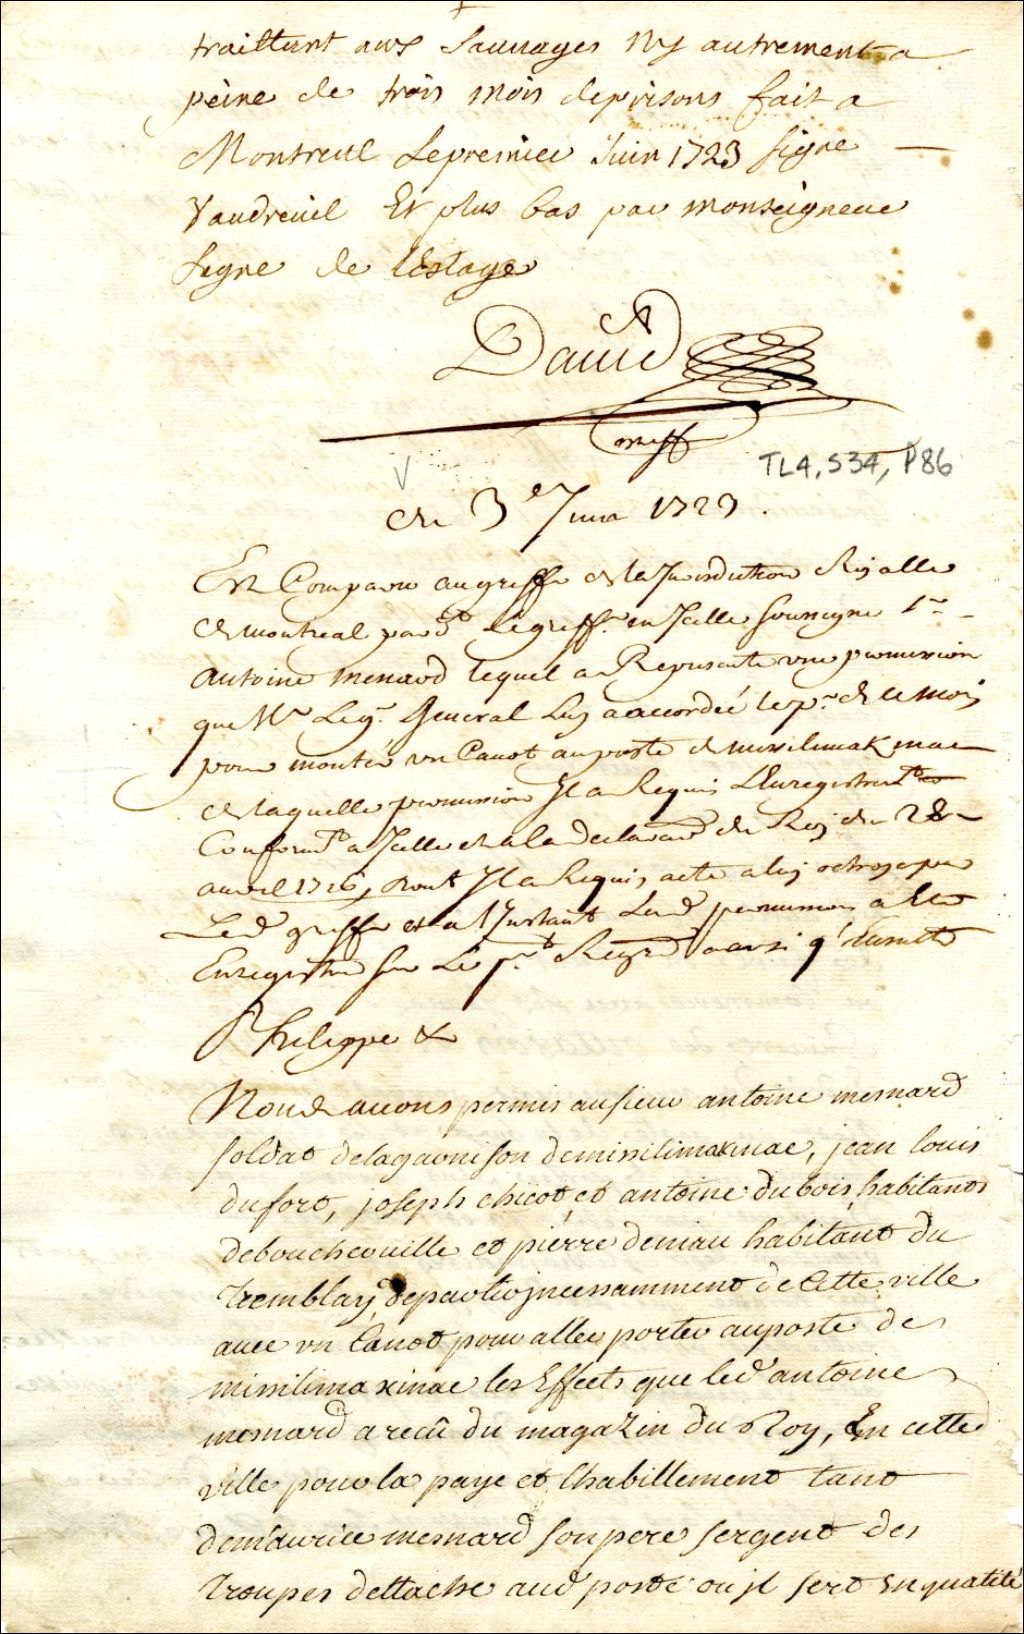 traittent aux Sauvages Ny autrement a
peine de trois mois deprisons fait a
Montreal Lepremier Juin 1723 signe
Vaudreuil Et plus bas par monseigneur
signe de Lestage
David
greff
TL4, S34, P86
Du 3e Juin 1723.
Est Comparu augreffe de la Jurisdiction Royalle
de montreal pard.t Legreff.r en Icelle soussigne le Sr
antoine menard lequel a Represente une permission
que Mr Le g. General Luy a accordée le pr de ce mois
pour monter un Canot au poste de missilimakinac
de laquelle permission Il a Requis LEnregistremt
Conformt a Icelle et a la declaraon du Roy du 28
avril 1716, dont Il a Requis acte a luy octroye par
Led greffe et a l'Instant Lad permission a Ete
Enregistree sur Le pnt Regre ainsi q'ensuit
Philippe &
Nous avons permis ausieur antoine mesnard
soldat delagarnison demissilimakinac, jean louis
dufort, joseph chicot, et antoine dubois habitants
deboucherville et pierre deniau habitant du
Tremblay departir jncessamment de Cette ville
avec un Canot pour aller porter auposte de
missilimakinac les Effects que led antoine
mesnard a recû du magazin du Roy, En cette
ville pour la paye et lhabillement tant
demaurice mesnard son pere sergent des
Troupes dettache aud poste ou jl sert Enqualité